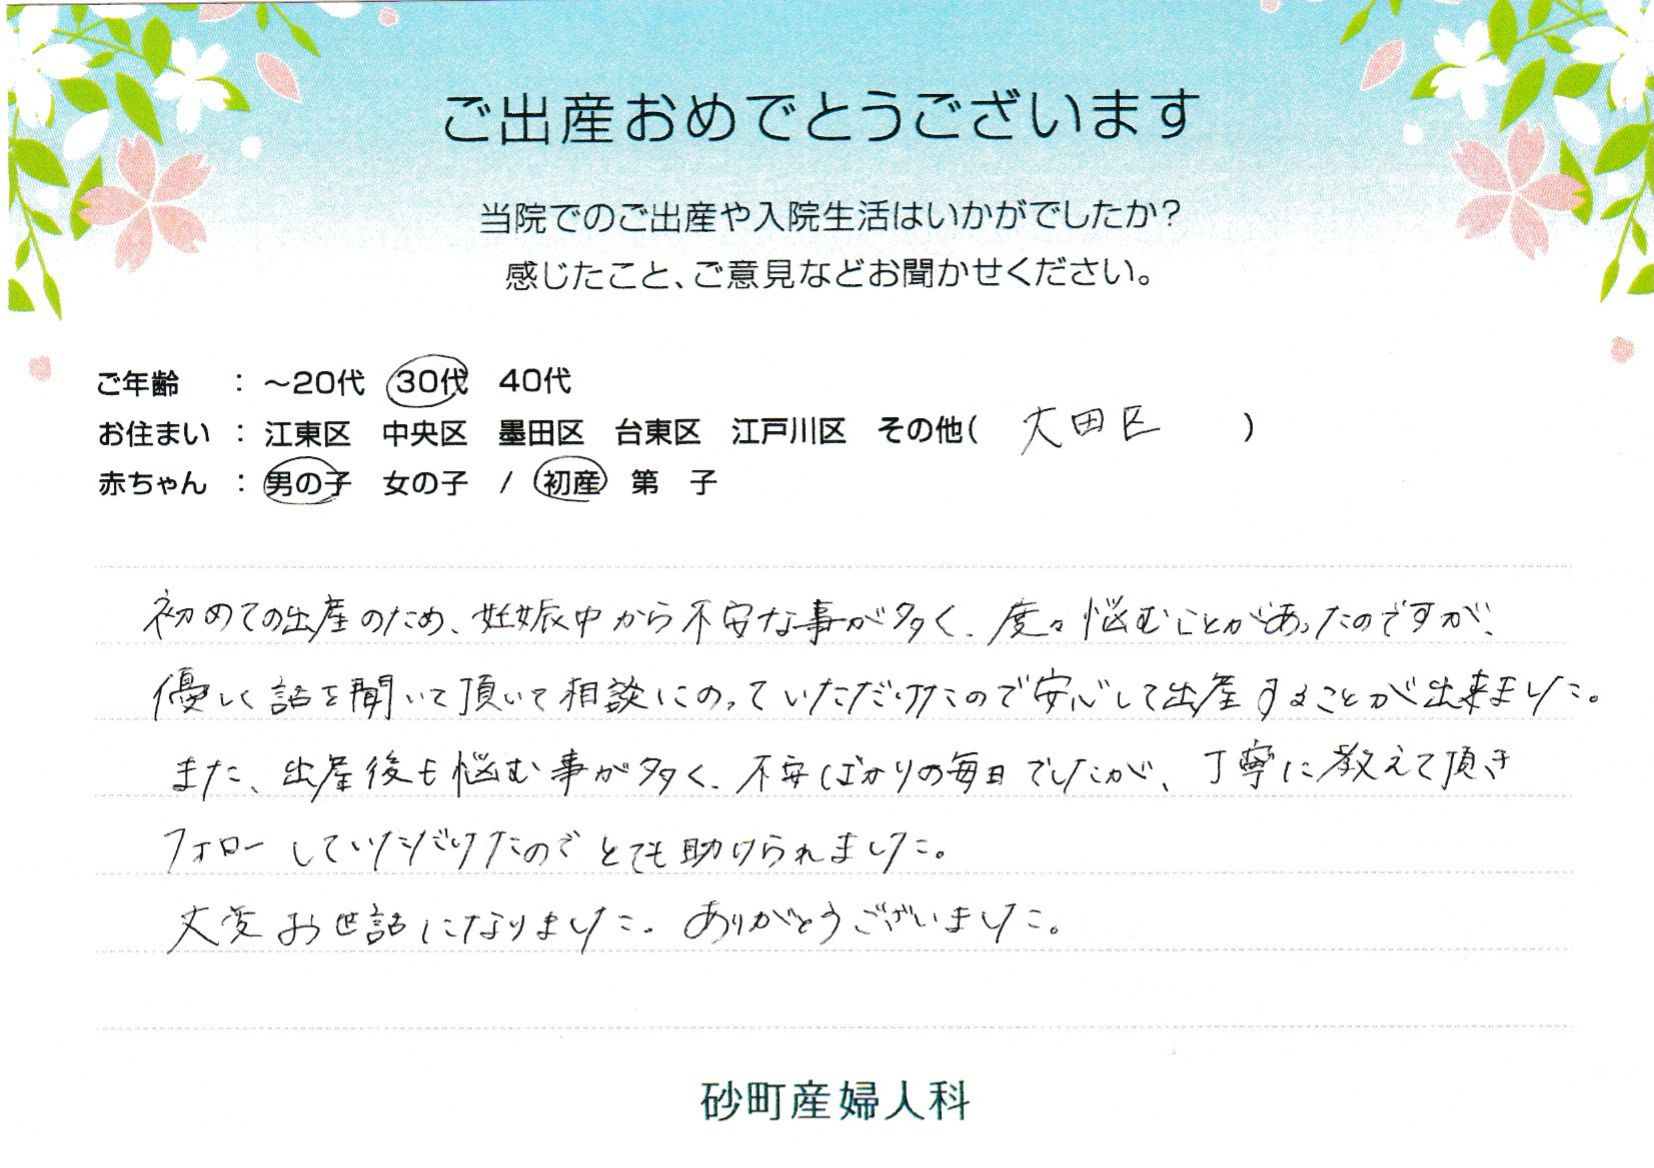 ご出産おめでとうございます
当院でのご出産や入院生活はいかがでしたか?
感じたこと、ご意見などお聞かせください。
ご年齢 : ～20代 30代 40代
お住まい : 江東区 中央区 墨田区 台東区 江戸川区 その他( 大田区 )
赤ちゃん : 男の子 女の子 / 初産 第 子
初めての出産のため、妊娠中から不安な事が多く、度々悩むことがあったのですが、
優しく話を聞いて頂いて相談にのっていただけたので安心して出産することが出来ました。
また、出産後も悩む事が多く、不安ばかりの毎日でしたが、丁寧に教えて頂き
フォローしていただけたのでとても助けられました。
大変お世話になりました。ありがとうございました。
砂町産婦人科